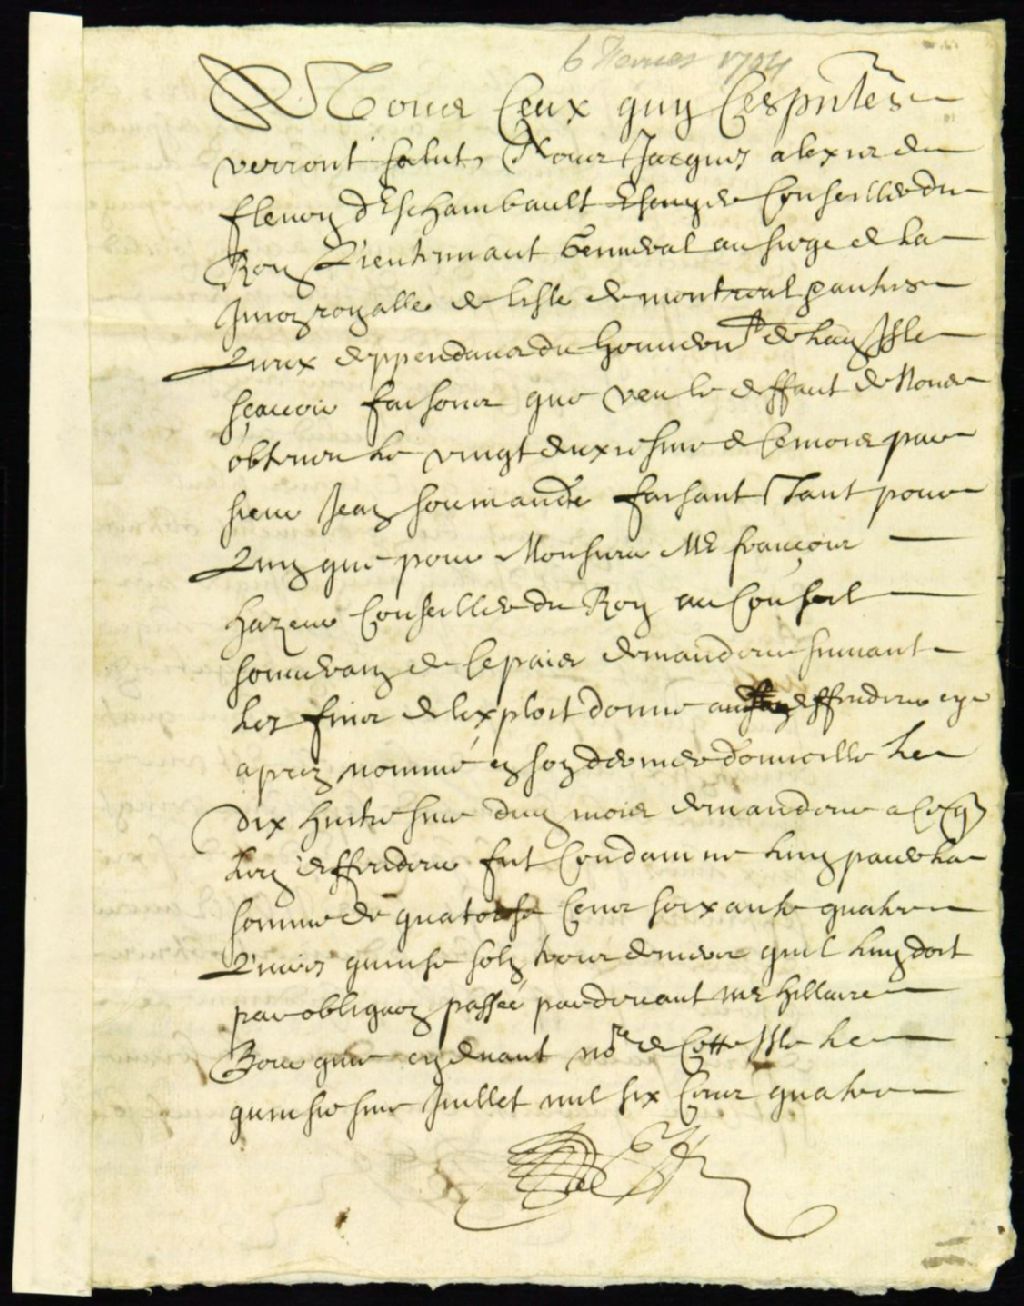 6 fevrier 1704
A Tous Ceux quy Ces pntes
verront salut, Nous Jacques alexis de
fleury dEschambault Escuyer Conseiller du
Roy Lieutenant General au siege de la
Jurison royalle de lisle de montreal pautres
Lieux deppendans du Gouvernt de lad Isle
sçavoir faisons que veu le deffaut de Nous
obtenu le vingt deuxiesme de Ce mois par
sieur Jean soumande faisant Tant pour
Luy que pour Monsieur Me françois
hazeur Conseiller du Roy au Conseil
souverain de Ce pais demandeur suivant
les fins de lexploit donné au deffendeur cy
apres nommé en son dernier domicille le
dix huitiesme dud mois demandeur a Ce q
led deffendeur fut Condamné luy payer la
somme de quatorse Cens soixante quatre
Livres quinse solz tournois quil luy doit
par obligaon passée pardevant me hillaire
Bourgine cy devant nore de Cette Isle le
quinsiesme Juillet mil six Cens quatre